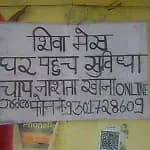 शिवा मेस
घर पहुच सुविधा
चाय नाश्ता खाना ONLINE
मो.नं. 9301728609